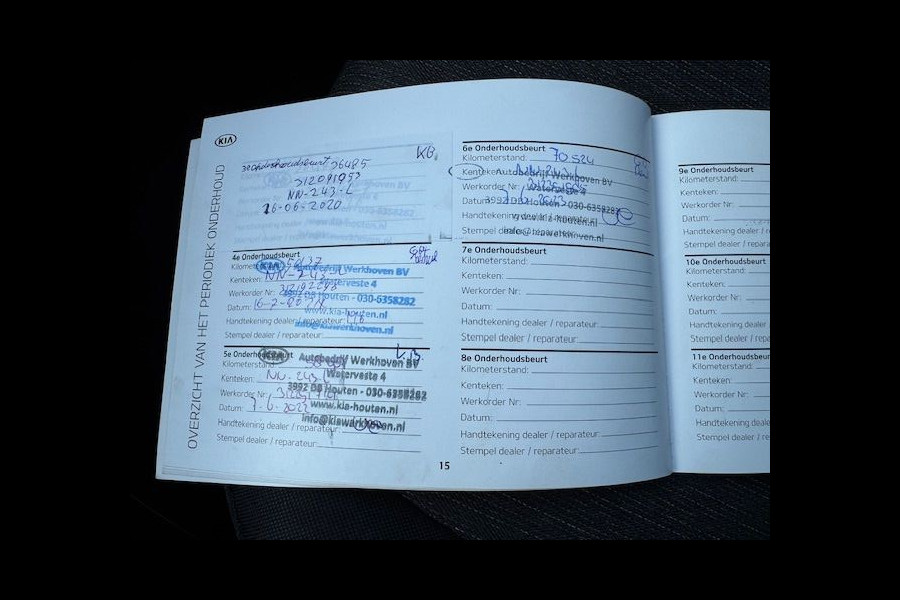 KIA
OVERZICHT VAN HET PERIODIEK ONDERHOUD
3e Onderhoudsbeurt 36485
KB.
312091953
NN-243-L
26-06-2020
4e Onderhoudsbeurt
Kilometerstand:
KIA Autobedrijf Werkhoven BV
Kenteken: NN-243-L
Waterveste 4
Werkorder Nr:
3992 DB Houten - 030-6358282
Datum: 16-2-
www.kia-houten.nl
Handtekening dealer / reparateur:
info@kiawerkhoven.nl
Stempel dealer / reparateur:
5e Onderhoudsbeurt
KIA Autobedrijf Werkhoven BV
Kilometerstand:
Waterveste 4
Kenteken: NN-243-L
3992 DB Houten - 030-6358282
Werkorder Nr:
www.kia-houten.nl
Datum: 7-6-2022
info@kiawerkhoven.nl
Handtekening dealer / reparateur:
Stempel dealer / reparateur:
15
6e Onderhoudsbeurt
Kilometerstand: 70524
Kenteken:
Autobedrijf Werkhoven BV
Werkorder Nr:
Waterveste 4
Datum:
3992 DB Houten - 030-6358282
Handtekening dealer / reparateur:
www.kia-houten.nl
Stempel dealer / reparateur:
7e Onderhoudsbeurt
Kilometerstand:
Kenteken:
Werkorder Nr:
Datum:
Handtekening dealer / reparateur:
Stempel dealer / reparateur:
8e Onderhoudsbeurt
Kilometerstand:
Kenteken:
Werkorder Nr:
Datum:
Handtekening dealer / reparateur:
Stempel dealer / reparateur:
9e Onderhoudsbeurt
Kilometerstand:
Kenteken:
Werkorder Nr:
Datum:
Handtekening dealer / repara
Stempel dealer / repara
10e Onderhoudsbeurt
Kilometerstand:
Kenteken:
Werkorder Nr:
Datum:
Handtekening dealer /
Stempel dealer / repara
11e Onderhoudsbeu
Kilometerstand:
Kenteken:
Werkorder Nr:
Datum:
Handtekening dealer
Stempel dealer / repa